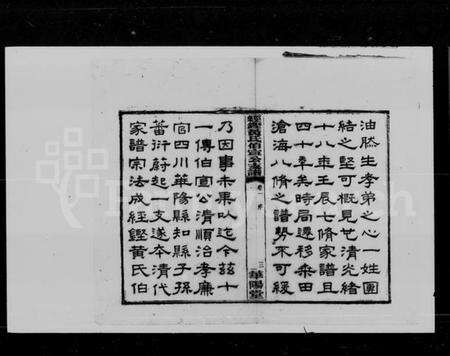 油然生孝弟之心一姓團
結之堅可概見也清光緒
十八年壬辰七修家譜且
四十年矣時局遷移桑田
滄海八修之譜勢不可緩
經鏗黃氏伯宣公家譜
華陽堂
乃因事未果以迄今茲十
一傳伯宣公清順治孝廉
官四川華陽縣知縣子孫
蕃衍蔚起一支遂本清代
家譜宗法成經鏗黃氏伯